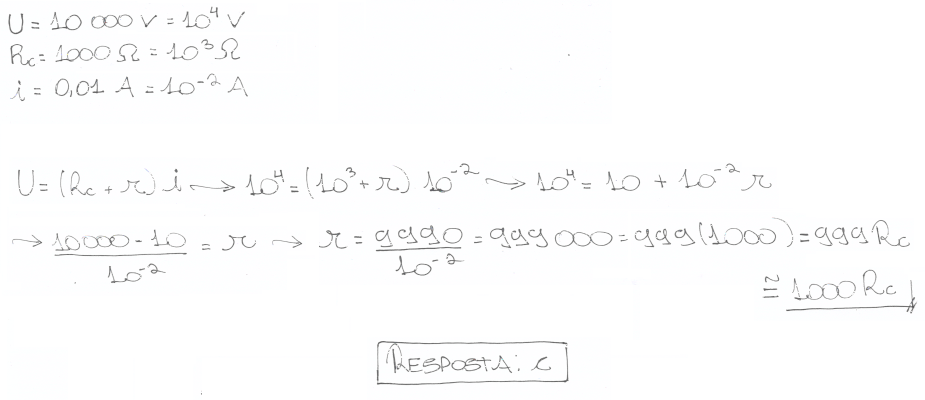 U = 10 000 V = 10⁴ V
Rc = 1000 Ω = 10³ Ω
i = 0,01 A = 10⁻² A
U = (Rc + r) i → 10⁴ = (10³ + r) 10⁻² → 10⁴ = 10 + 10⁻² r
→ (10000 - 10)/10⁻² = r → r = 9990/10⁻² = 999 000 = 999(1000) = 999 Rc
≅ 1000 Rc
RESPOSTA: C